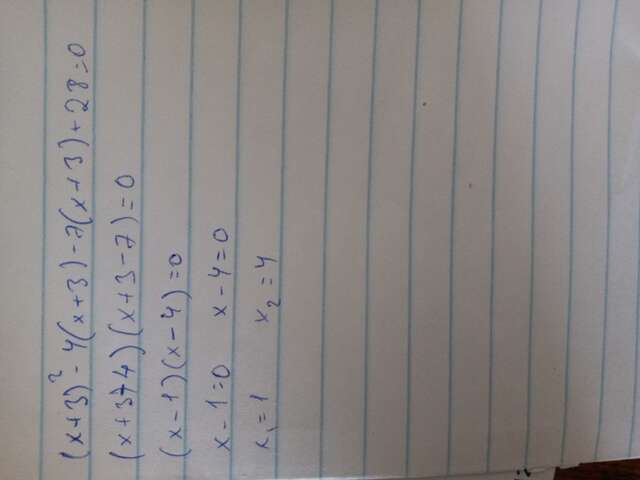 (x+3)² - 4(x+3) - 7(x+3) + 28 = 0
(x+3-4)(x+3-7) = 0
(x-1)(x-4) = 0
x-1=0 x-4=0
x₁=1 x₂=4